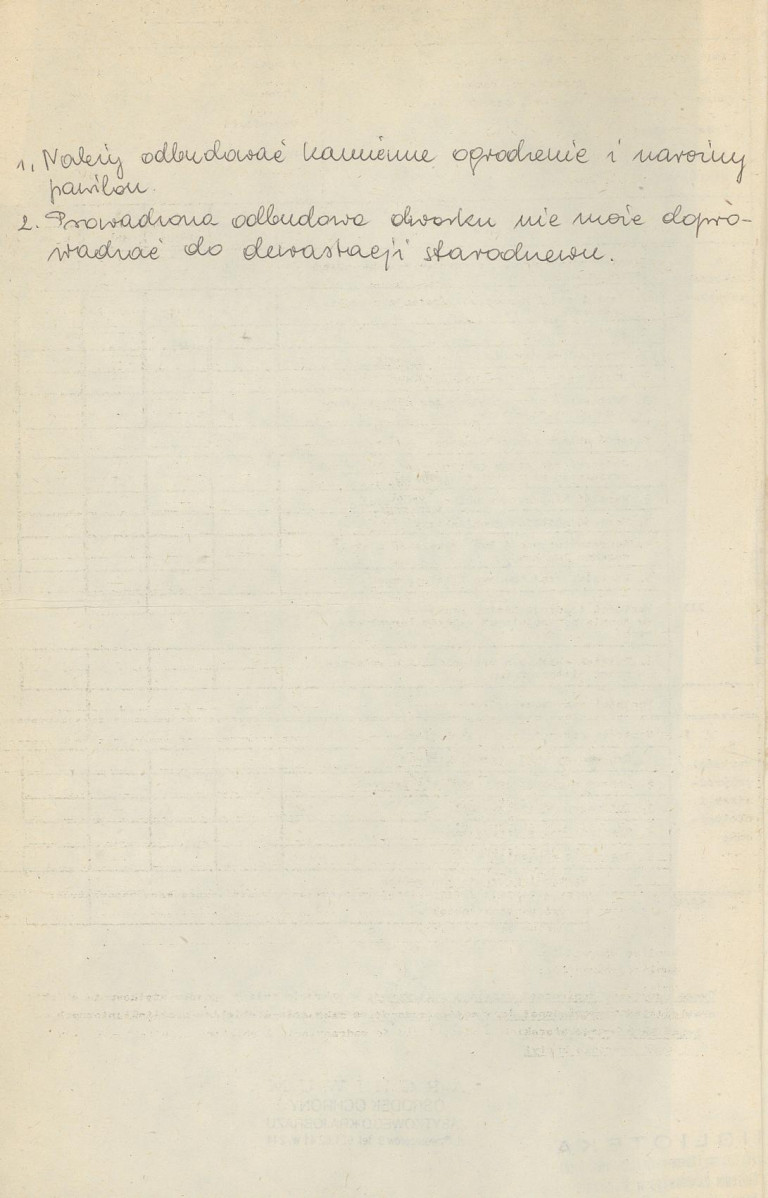 1. Należy odbudować kamienne ogrodzenie i narożny
pawilon.
2. Prowadzona odbudowa dworku nie może dopro-
wadzać do dewastacji starodrzewu.